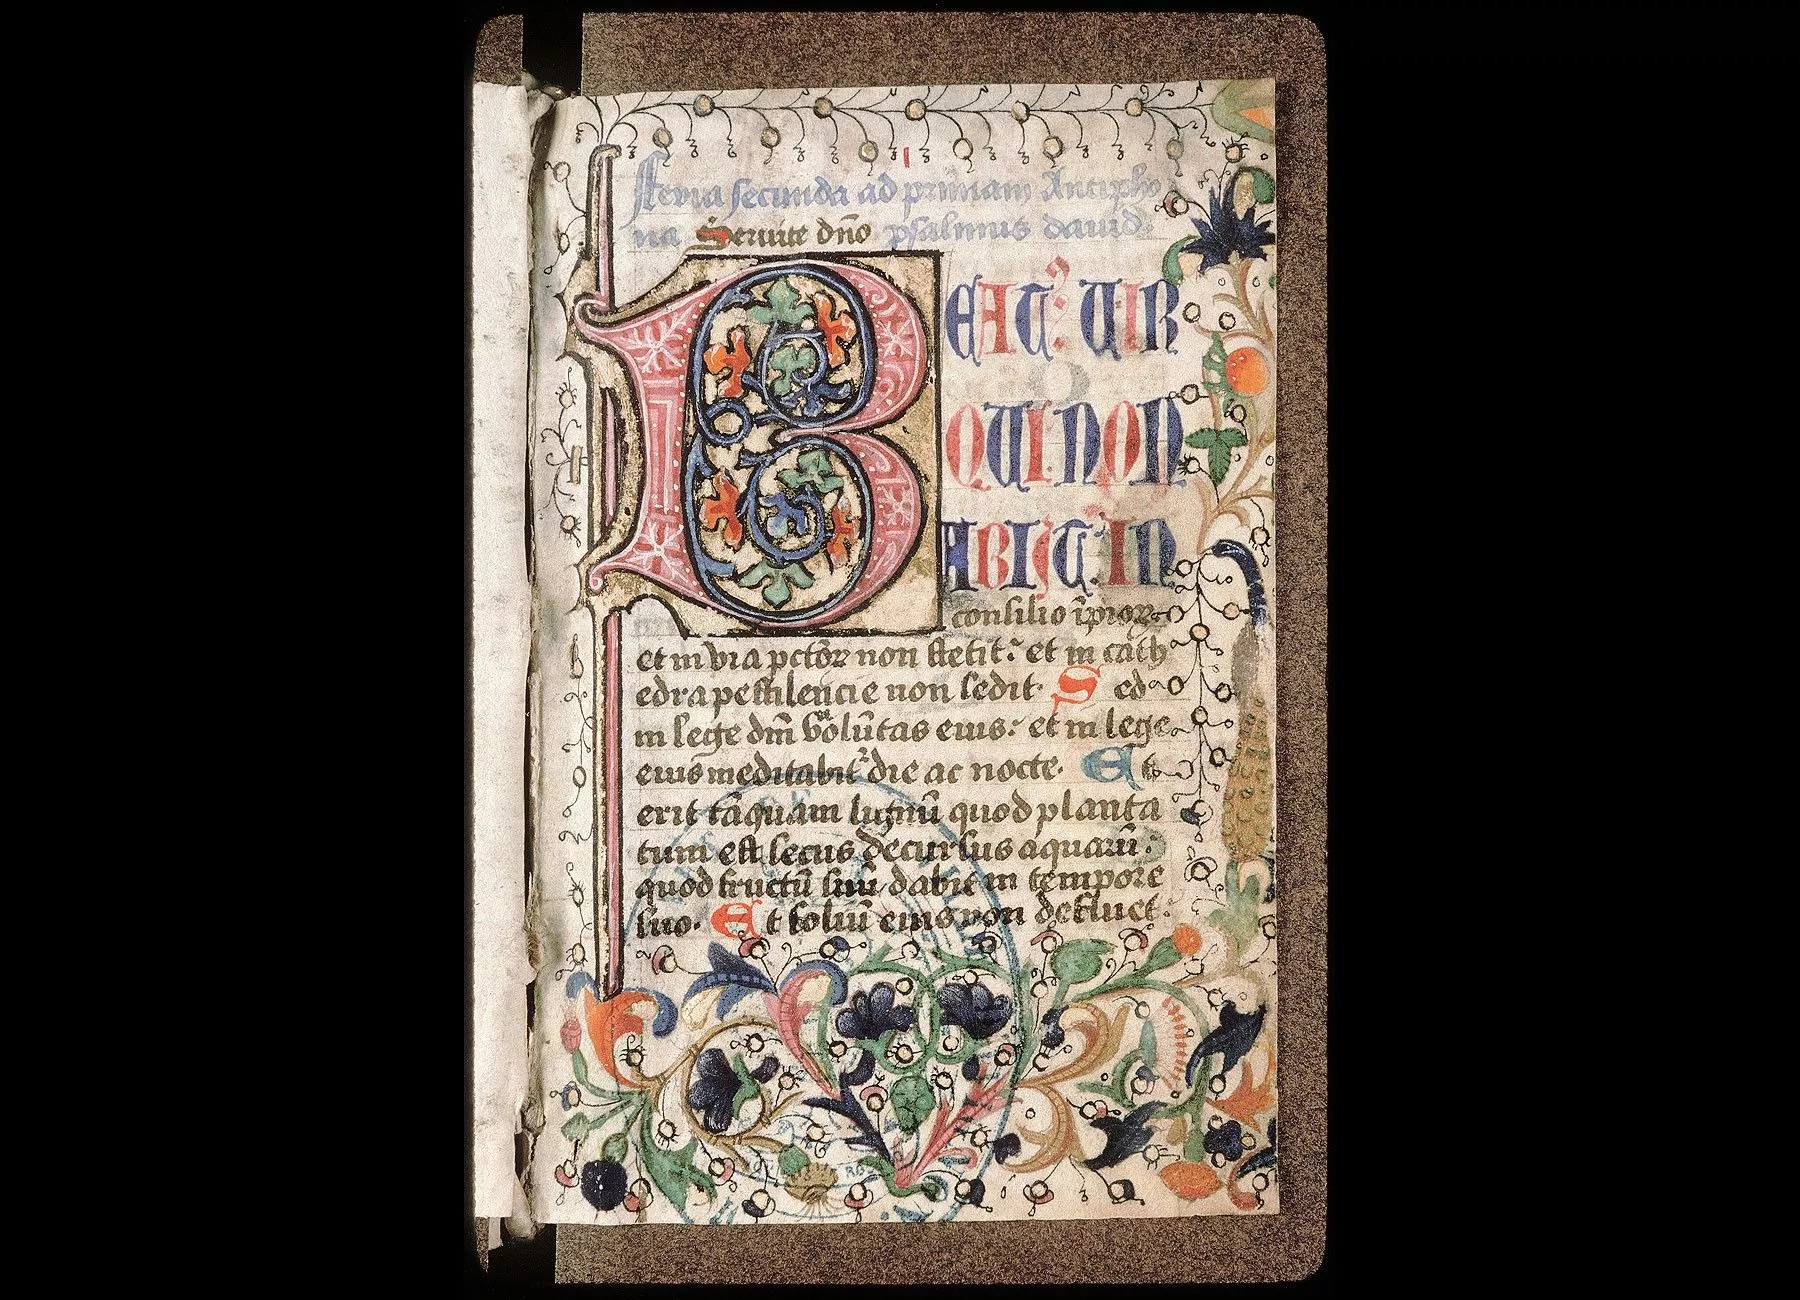 Feria secunda ad primam Antipho
na Seruite dño psalmus dauid
BEATꝰ UIR
QUI NON
ABIIT IN
consilio īpioꝝ
et in via pctōꝝ non stetit: et in cath
edra pestilencie non sedit. Sed
in lege dm̄ volūtas eius: et in lege
eius meditabitᷣ die ac nocte. Et
erit tāquam lignū quod planta
tum est secus decursus aquarū:
quod fructū suū dabit in tempore
suo. Et foliū eius non defluet: